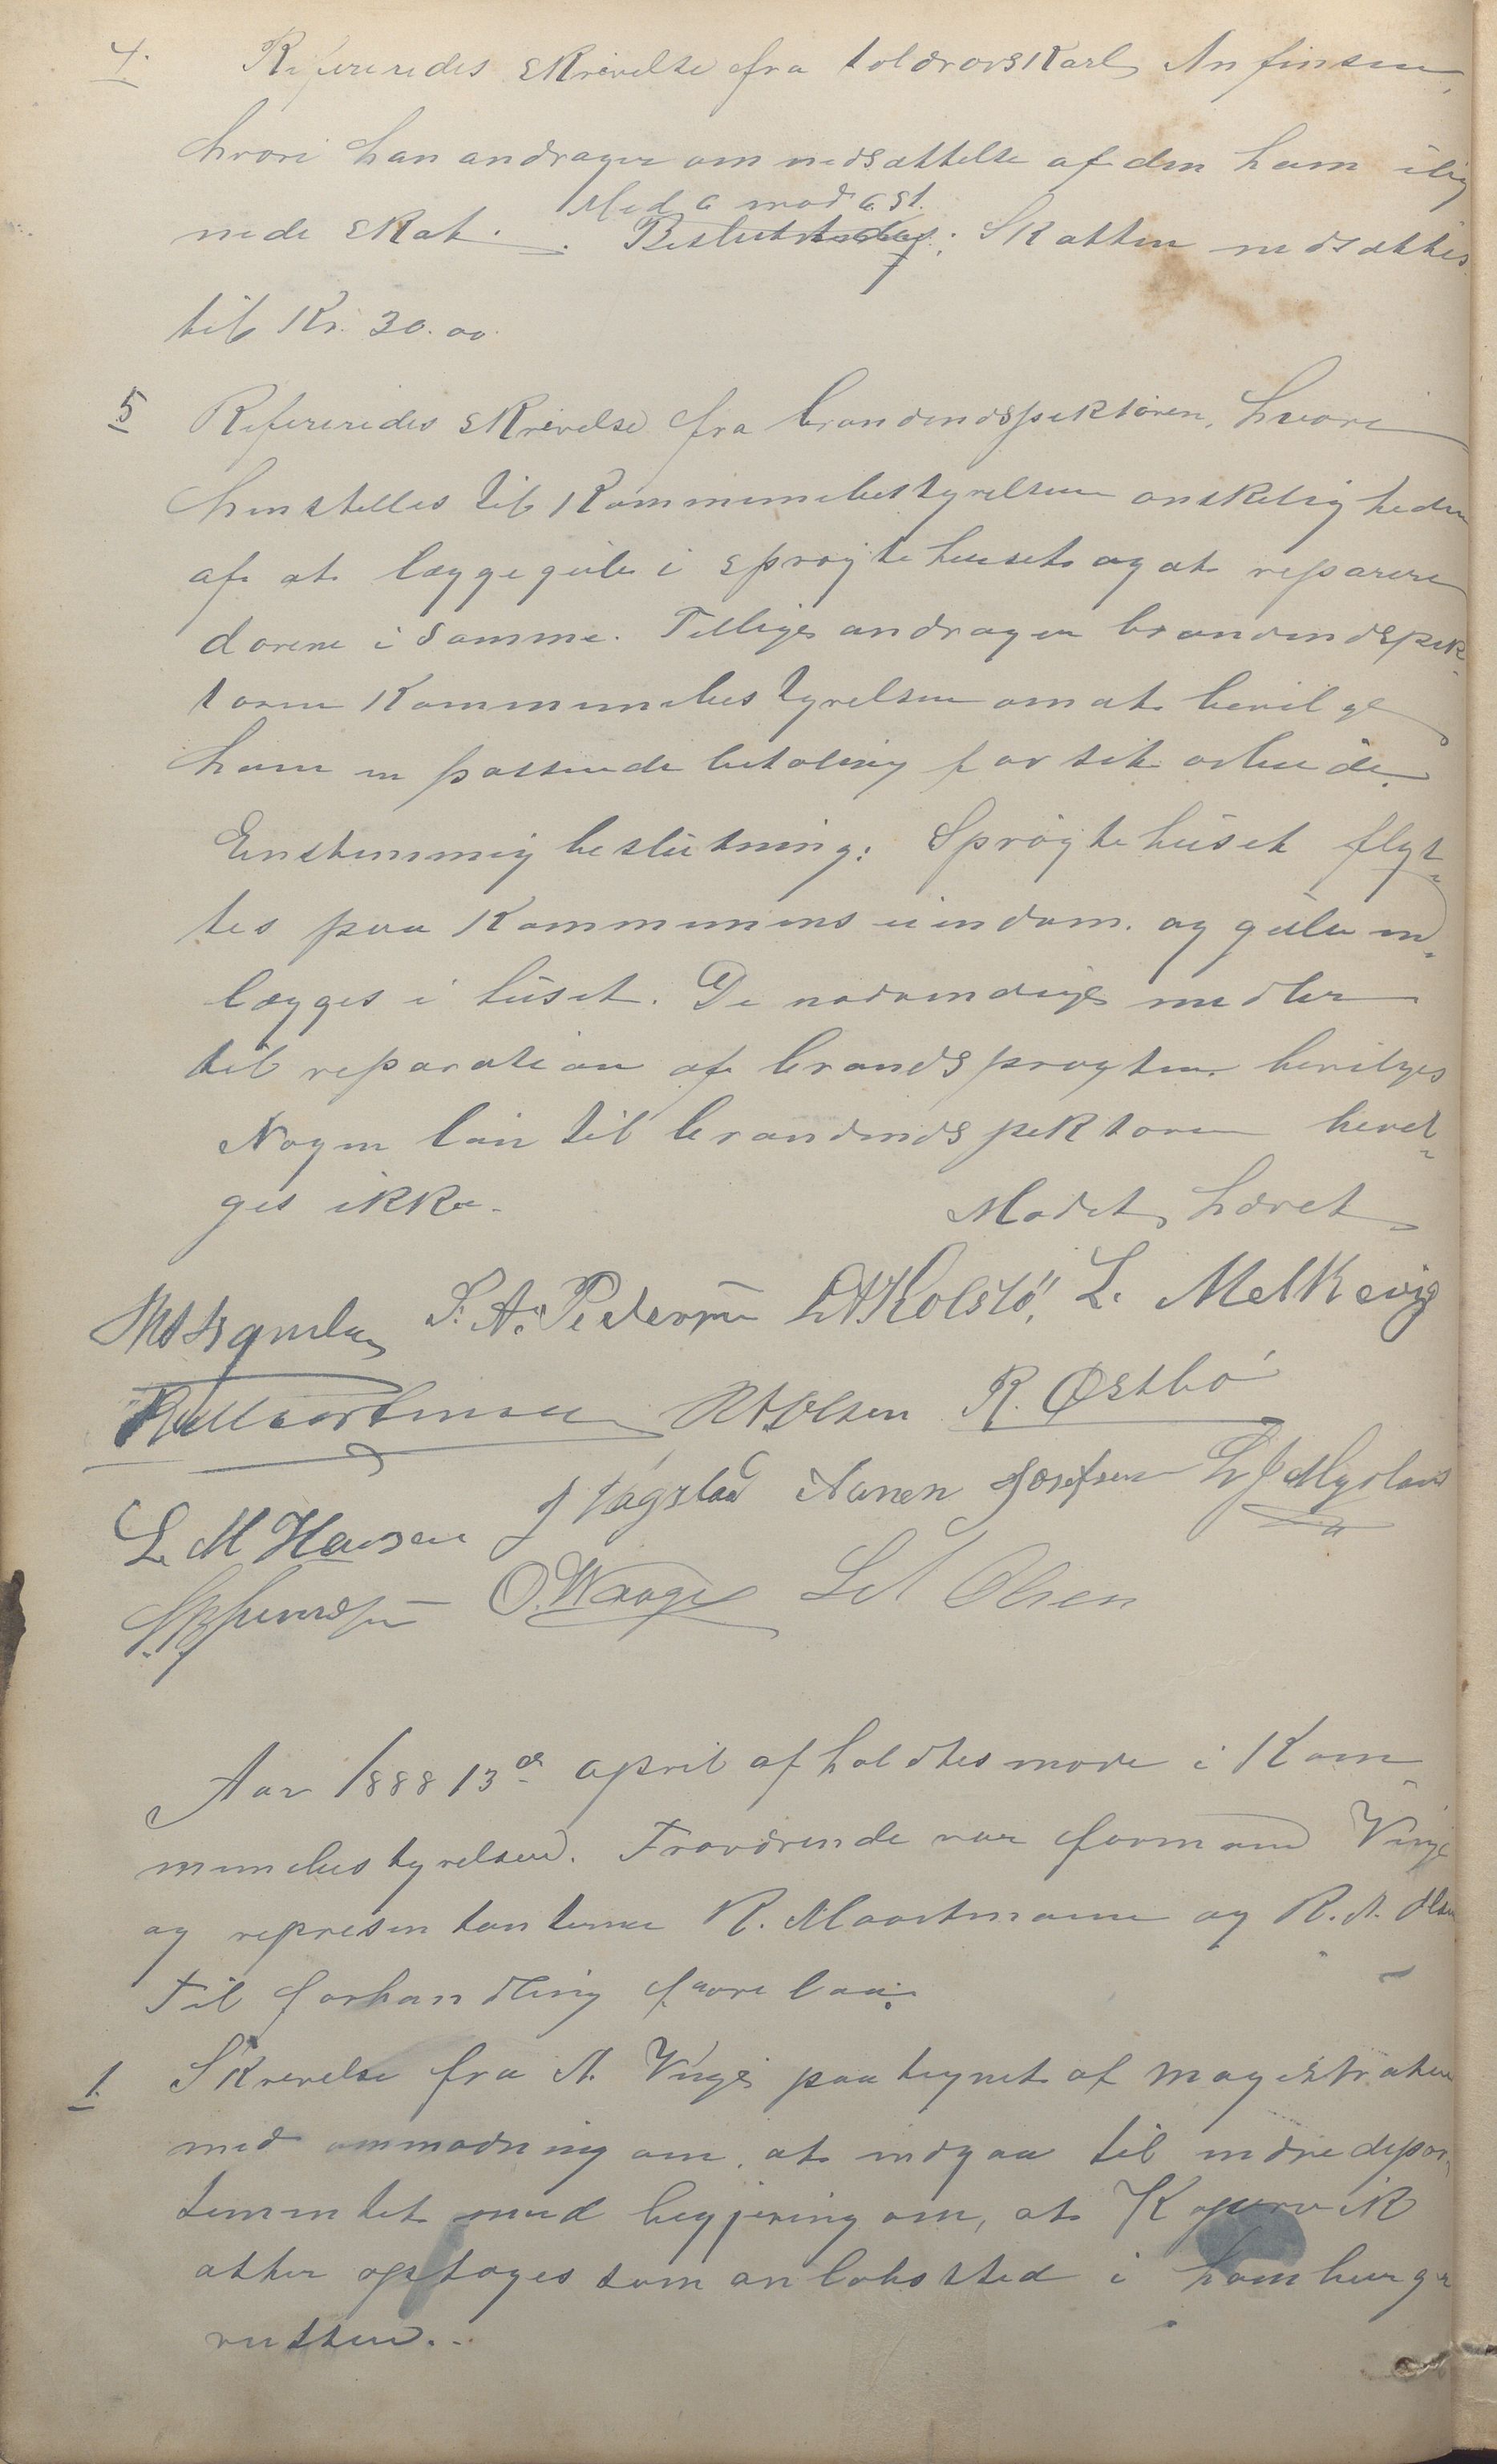 4. Refereredes skrivelse fra toldrorskarl Anfinsen,
hvori han andrager om nedsættelse af den ham ilig
Med 6 mod 6 st.
nede skat. Besluttedes: Skatten nedsættes
til Kr. 30.00
5 Refereredes skrivelse fra brandindspektøren, hvori
henstilles til Kommunebestyrelsen ønskeligheden
af at lægge gulv i sprøjtehuset og at reparere
dørene i samme. Tillige andrager brandindspek-
tøren Kommunebestyrelsen om at bevilge
ham en passende betaling for sit arbeide.
Enstemmig beslutning: Sprøjtehuset flyt-
tes paa Kommunens eiendom. og gulv in-
lægges i huset. De nødvendige midler
til reparation af brandsprøyten bevilges
Nogen løn til brandindspektøren bevil-
ges ikke.
Mødet hævet
S. A. Pedersen L. Melkevig
R Maartmann R A Olsen R. Østbö
L. M Hansen J Vagslad Aanen Josefsen
O. Waage Olsen
Aar 1888 13de april afholdtes møde i Kom-
munebestyrelsen. Fraværende var formand Vinje
og representanterne R. Maartmann og R. A. Olsen
Til forhandling forelaa:
1. Skrivelse fra A. Vinje paategnet af magistraten
med anmodning om, at indgaa til indredepar-
tementet med begjering om, at Kopervik
atter optages som anløbssted i hamburger
rutten.